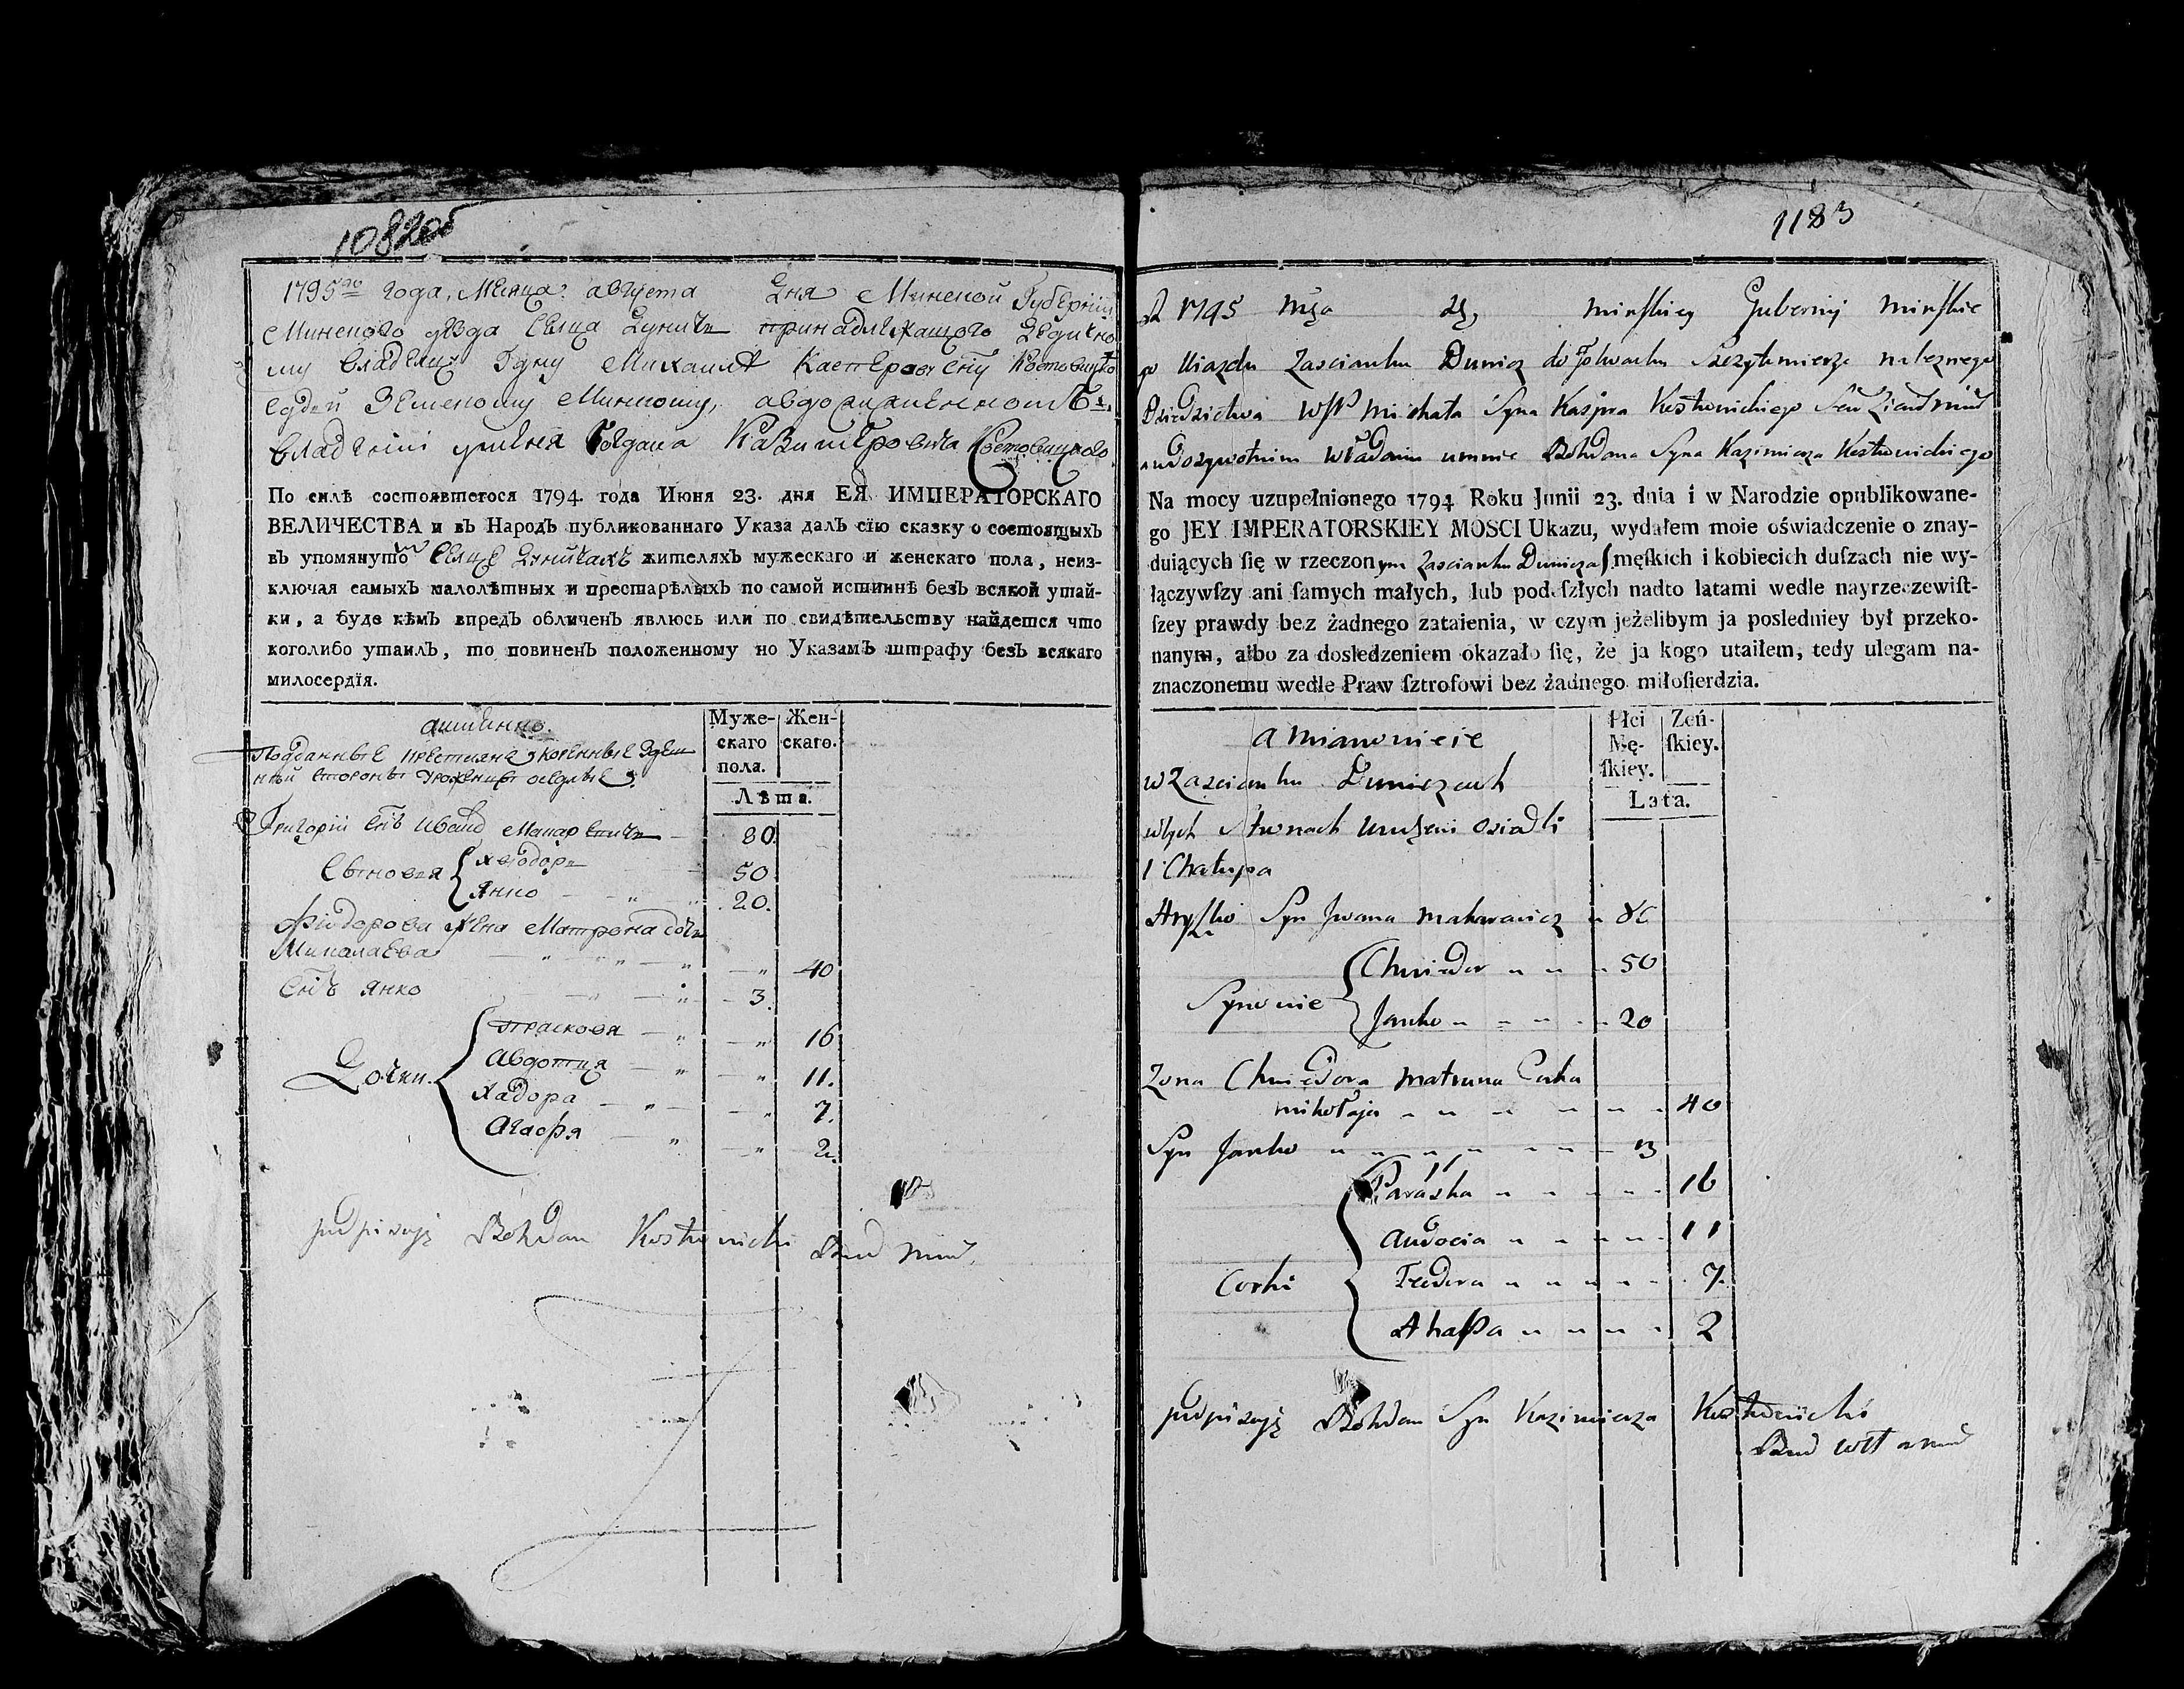 1082об
1795го года, Месяца августа Дня Минской Губернии
Минского уезда Селца Дунич принадлежащого Дедично
му Владелцу Гдну Михаилу Касперов Сну Костовицко
Судьи Земскому Минскому, а
владении у мене Богдана Казимировича Костовицкого
По силѣ состоявшегося 1794. года Июня 23. дня ЕЯ ИМПЕРАТОРСКАГО
ВЕЛИЧЕСТВА и въ Народъ публикованнаго Указа далъ сїю сказку о состоящыхъ
въ упомянуто Селце Дуничахъ жителяхъ мужескаго и женскаго пола, неиз-
ключая самыхъ малолѣтных и престарѣлыхъ по самой истиннѣ безъ всякой утай-
ки, а буде кѣмъ впредъ обличенъ явлюсь или по свидѣтельству найдется что
коголибо утаилъ, то повиненъ положенному по Указамъ штрафу безъ всякаго
милосердїя.
аимянно.
Муже-
скаго
пола.
Жен-
скаго.
Лѣта.
Подданные крестяне коренные здеш
ней стороны уроженцы оседлые
Григорий Снъ Ивана Макаревича 80.
Сыновя
Хведор 50
Янко 20.
Фиодорова Жена Матрона доч
Миколаева 40
Снъ Янко 3.
Дочки
Прасковя 16
Авдотия 11.
Хадора 7.
Агафя 2.
podpisuję Bohdan Kostrowicki
1183
R 1795 Mca D, Minskiey Gubernij Minskie
go Uiazdu Zascianku Dunicz do Folwarku należnego
Dziedzictwa Michała Syna Kaspra Kostrowickiego
władaniu u mnie Bohdana Syna Kazimierza Kostrowickiego
Na mocy uzupełnionego 1794 Roku Junii 23. dnia i w Narodzie opublikowane-
go JEY IMPERATORSKIEY MOSCI Ukazu, wydałem moie oświadczenie o znay-
duiących ſię w rzeczonym Zascianku Dunicza męſkich i kobiecich duſzach nie wy-
łączywſzy ani ſamych małych, lub podeſzłych nadto latami wedle nayrzeczewiſt-
ſzey prawdy bez żadnego zataienia, w czym jeżelibym ja posledniey był przeko-
nanym, albo za dosledzeniem okazało ſię, że ja kogo utaiłem, tedy ulegam na-
znaczonemu wedle Praw ſztrofowi bez żadnego miłoſierdzia.
a mianowicie
Płci
Mę-
ſkiey.
Zeń-
ſkiey.
Lata.
w Zascianku Duniczach
w tych Stronach urodzeni osiadli
1 Chałupa
Hryszko Syn Jwana Makarowicz 80
Synowie
Chwiedor 50
Janko 20
Zona Chwiedora Matruna Corka
Mikołaja 40
Syn Janko 3
Corki
Paraska 16
Audocia 11
Feudora 7
Ahaffa 2
podpisuję Bohdan Syn Kazimierza Kostrowicki